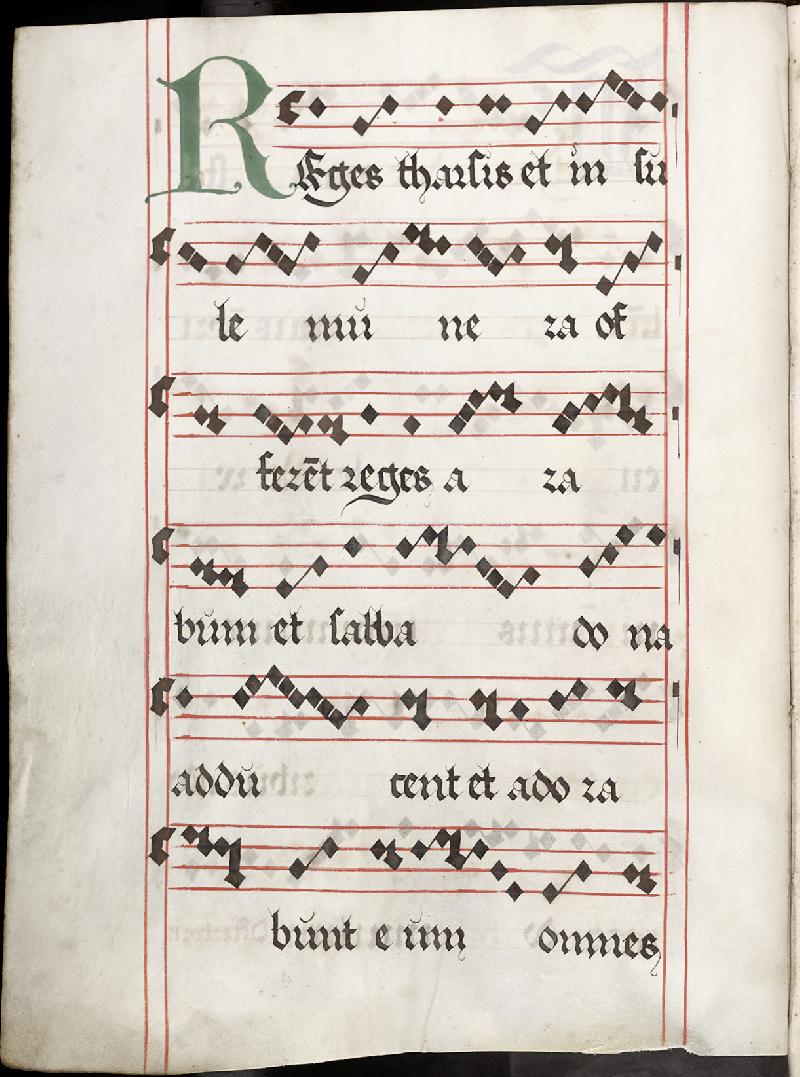 REges tharsis et in su
le mu ne ra of
ferēt reges a ra
bum et salba do na
addu cent et ado ra
bunt e um omnes